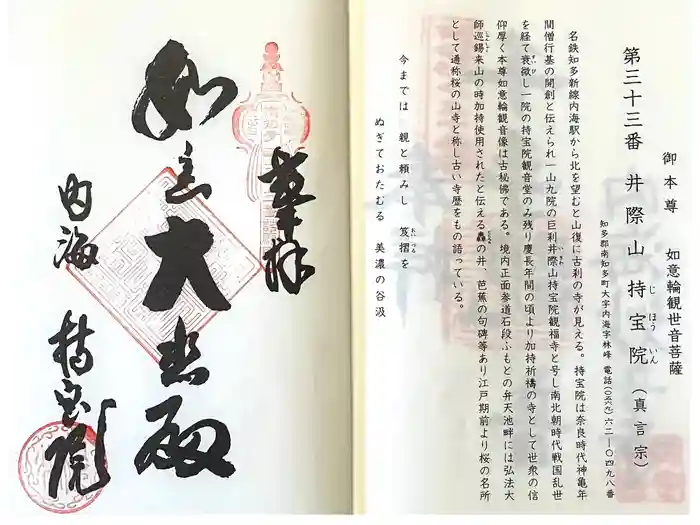 第三十三番 井際山 持宝院(真言宗)
じほういん
御本尊 如意輪観世音菩薩
知多郡南知多町大字内海字林峰 電話(〇五六九)六二―〇四九八番
名鉄知多新線内海駅から北を望むと山復に古刹の寺が見える。持宝院は奈良時代神亀年
間僧行基の開創と伝えられ一山九院の巨刹井際山持宝院観福寺と号し南北朝時代戦国乱世
を経て衰微し一院の持宝院観音堂のみ残り慶長年間の頃より加持祈祷の寺として世衆の信
仰厚く本尊如意輪観音像は古秘佛である。境内正面参道石段ふもとの弁天池畔には弘法大
師巡錫来山の時加持使用されたと伝える轟の井、芭蕉の句碑等あり江戸期前より桜の名所
として通称桜の山寺と称し古い寺歴をもの語っている。
今までは 親と頼みし 笈摺を
おいづる
ぬぎておたむる 美濃の谷汲
奉拝
如意大悲殿
内海 持宝院